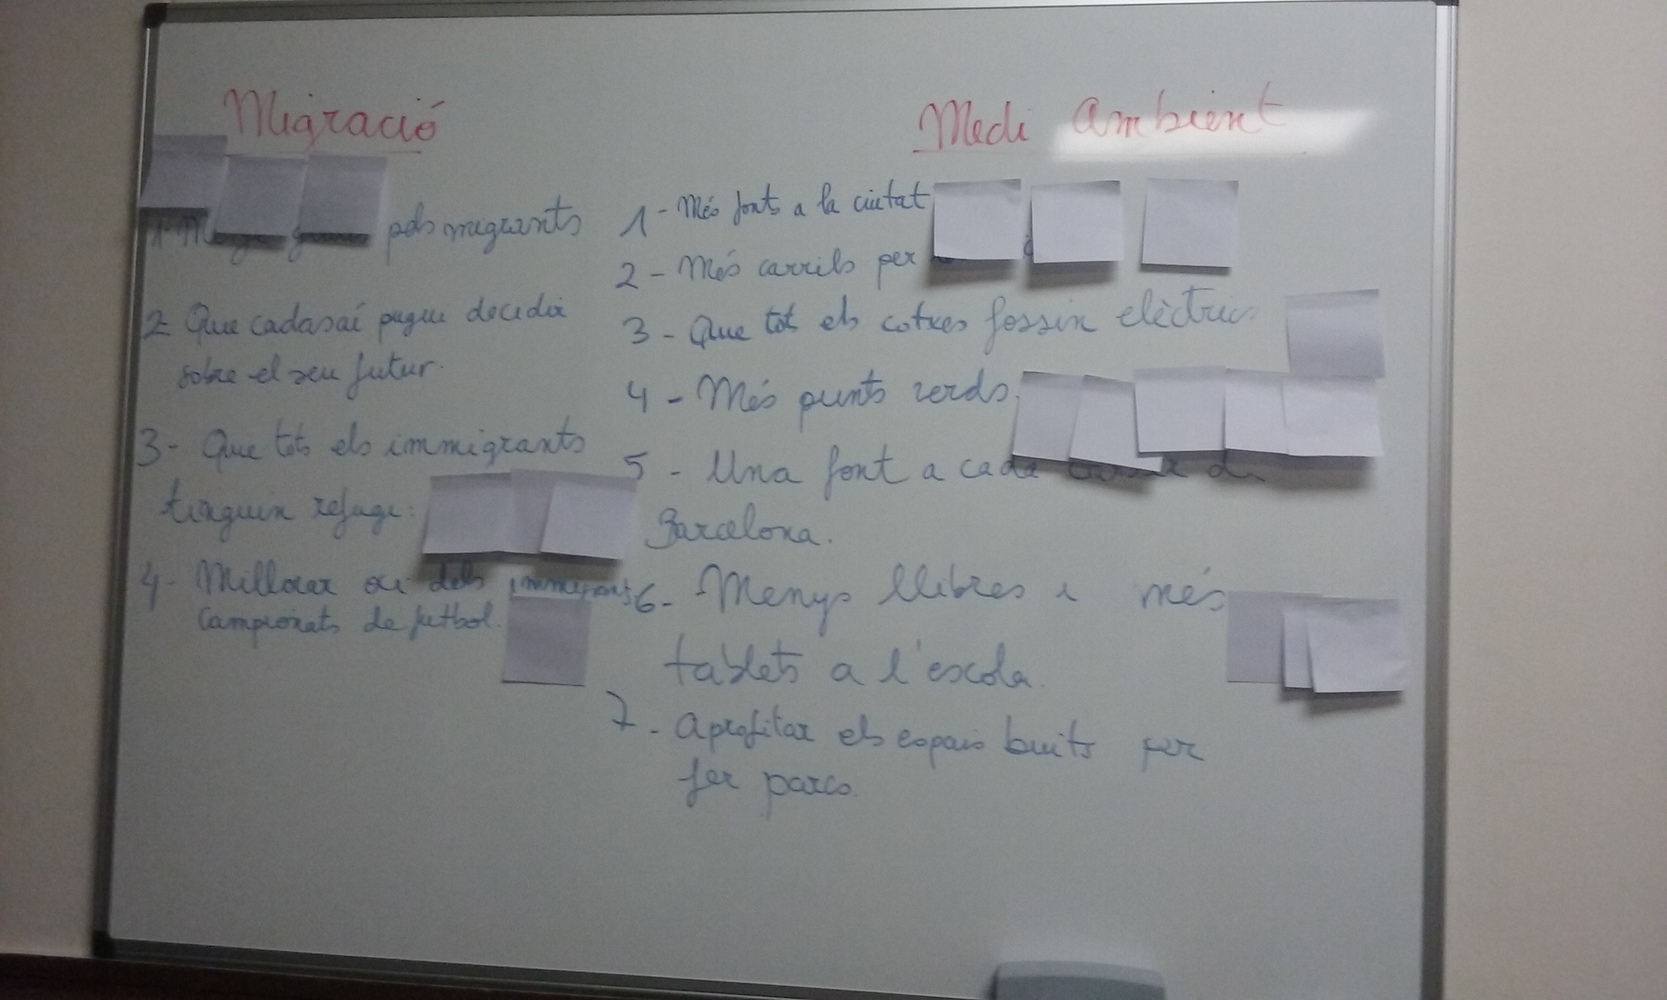 Migració
pels migrants
2- Que cadasaí pugui decidir
sobre el seu futur.
3- Que tots els immigrants
tinguin refugi:
4- Millorar dels immigrants
campionats de futbol.
Medi Ambient
1- Més fonts a la ciutat
2- Més carrils per
3- Que tot els cotxes fossin elèctrics
4- Més punts verds.
5- Una font a cada
Barcelona.
6- Menys llibres i més
tablets a l'escola.
7- Aprofitar els espais buits per
fer parcs.